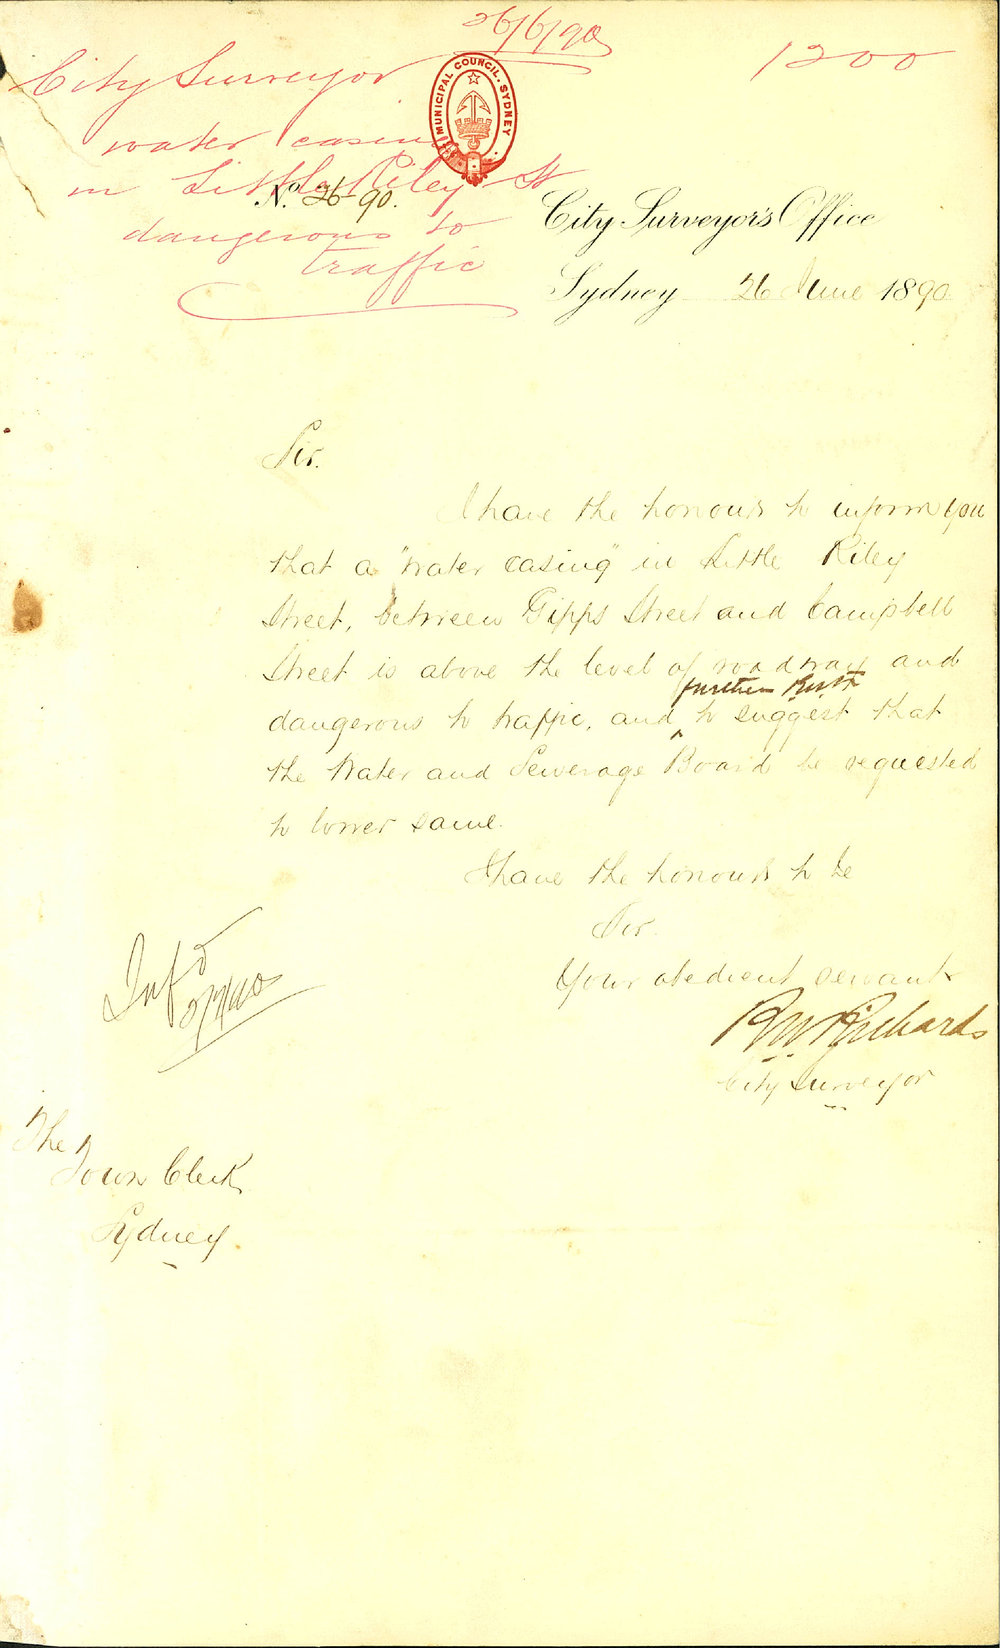 26/6/90
1200
City Surveyor
water casing
in Little Riley St
dangerous to
traffic
MUNICIPAL COUNCIL. SYDNEY
No. 26-90.
City Surveyor's Office
Sydney 26 June 1890
Sir.
I have the honour to inform you
that a "water casing" in Little Riley
Street, between Gipps Street and Campbell
Street is above the level of roadway and
further
dangerous to traffic, and to suggest that
the Water and Sewerage Board be requested
to lower same.
I have the honour to be
Sir.
Your obedient servant
RW Richards
City Surveyor
Infd
The
Town Clerk
Sydney.